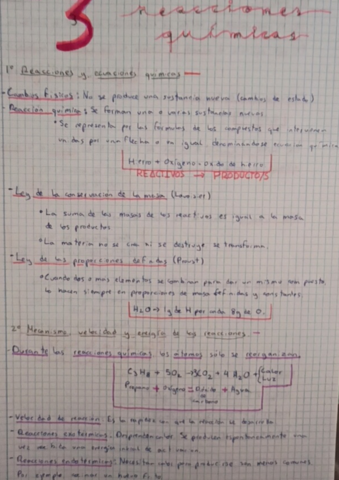 5 reacciones
químicas
1º Reacciones y ecuaciones químicas
- Cambio físico: No se produce una sustancia nueva (cambios de estado)
- Reacción química: Se forman una o varias sustancias nuevas
• Se representa por las fórmulas de los compuestos que intervienen
por una flecha o un igual, denominándose ecuación química
Hierro + Oxígeno = Óxido de hierro
REACTIVOS → PRODUCTO/S
- Ley de la conservación de la masa
• La suma de las masas de los reactivos es igual a la masa
de los productos
• La materia no se crea ni se destruye se transforma
- Ley de las proporciones definidas (Proust)
• Cuando dos o mas elementos se combinan para dar un mismo compuesto
lo hacen siempre en proporciones de masa definidas y constantes
H₂O → 1g de H por cada 8g de O.
2º Mecanismo, velocidad y energía de las reacciones
- Durante las reacciones químicas los átomos solo se reorganizan.
C₃H₈ + 5O₂ → 3CO₂ + 4H₂O + calor luz
Propano + Oxígeno = Dióxido + Agua
carbono
- Velocidad de reacción: Es la rapidez con que la reacción se
- Reacciones exotérmicas: Desprenden calor. Se producen espontáneamente
una energía inicial de activación.
- Reacciones endotérmicas: Necesitan calor para producirse, son menos comunes.
Por ejemplo,